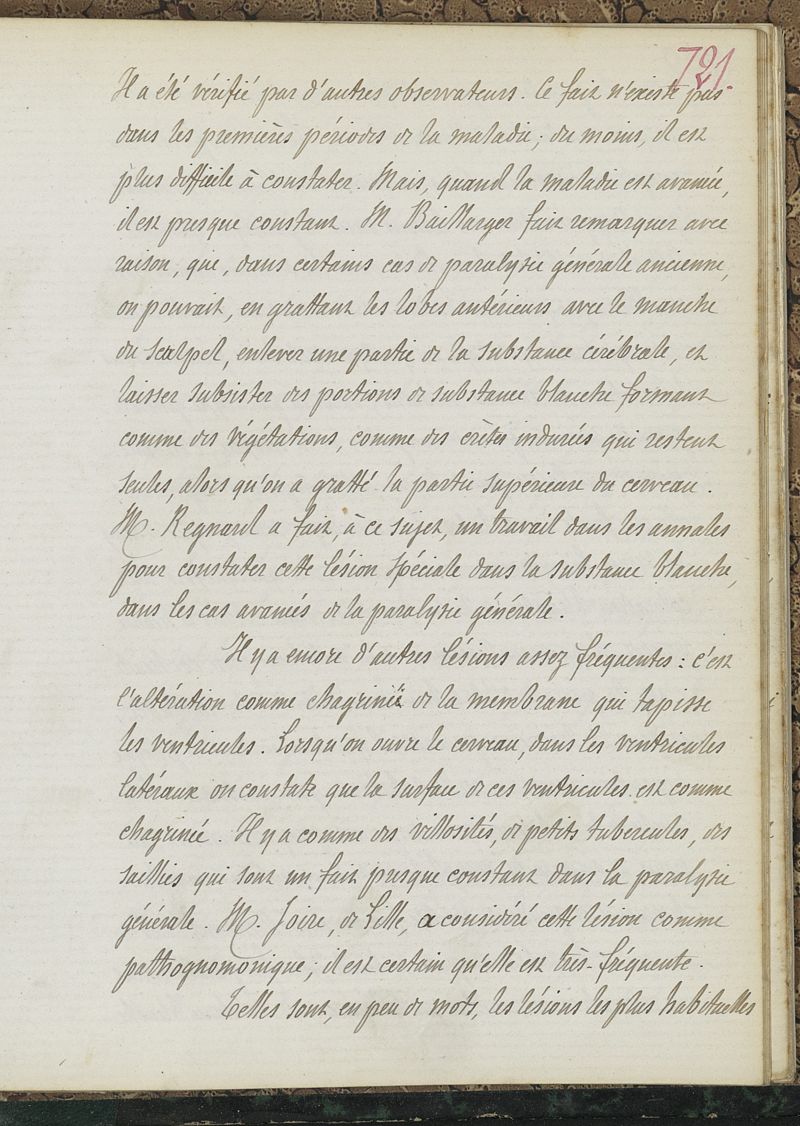 721
Il a été vérifié par d'autres observateurs. Ce fait n'existe pas
dans les premières périodes de la maladie; du moins, il est
plus difficile à constater. Mais, quand la maladie est avancée,
il est presque constant. M. Baillarger fait remarquer avec
raison, que, dans certains cas de paralysie générale ancienne,
on pouvait, en grattant les lobes antérieurs avec le manche
du scalpel, enlever une partie de la substance cérébrale, et
laisser subsister des portions de substance blanche formant
comme des végétations, comme des crètes indurées qui restent
seules, alors qu'on a gratté la partie supérieure du cerveau.
M. Regnard a fait, à ce sujet, un travail dans les annales
pour constater cette lésion spéciale dans la substance blanche,
dans les cas avancés de la paralysie générale.
Il y a encore d'autres lésions assez fréquentes: c'est
l'altération comme chagrinée de la membrane qui tapisse
les ventricules. Lorsqu'on ouvre le cerveau, dans les ventricules
latéraux on constate que la surface de ces ventricules est comme
chagrinée. Il y a comme des villosités, de petits tubercules, des
saillies qui sont un fait presque constant dans la paralysie
générale. M. Joire, de Lille, a considéré cette lésion comme
pathognomonique; il est certain qu'elle est très-fréquente.
Telles sont, en peu de mots, les lésions les plus habituelles